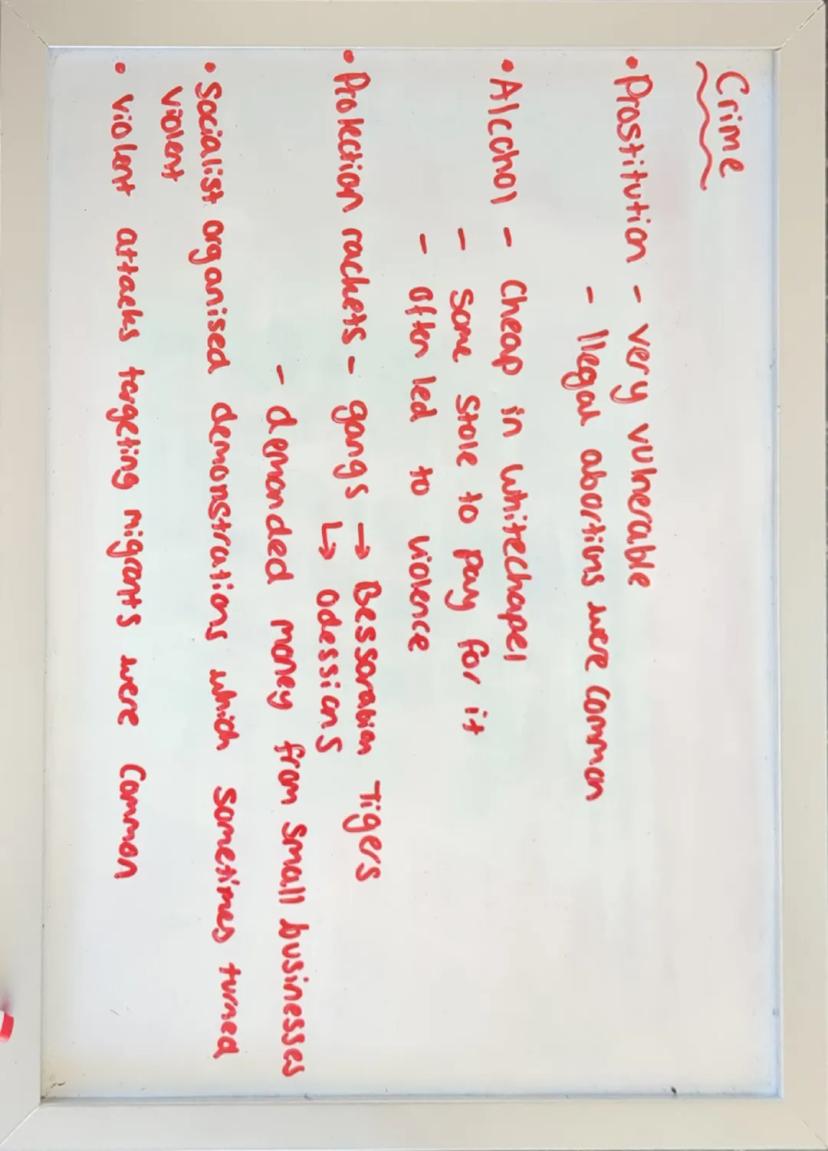 Crime
• Prostitution - very vulnerable
- Illegal abortions were common
• Alcohol - Cheap in whitechapel
- some stole to pay for it
- often led to violence
• Protection rackets - gangs → Bessarabian Tigers
↳ Odessians
- demanded money from small businesses
• Socialist organised demonstrations which sometimes turned
violent
• violent attacks targeting migrants were common